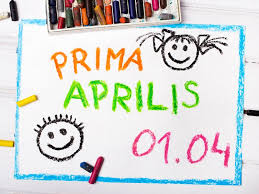 PRIMA
APRILIS
01.04